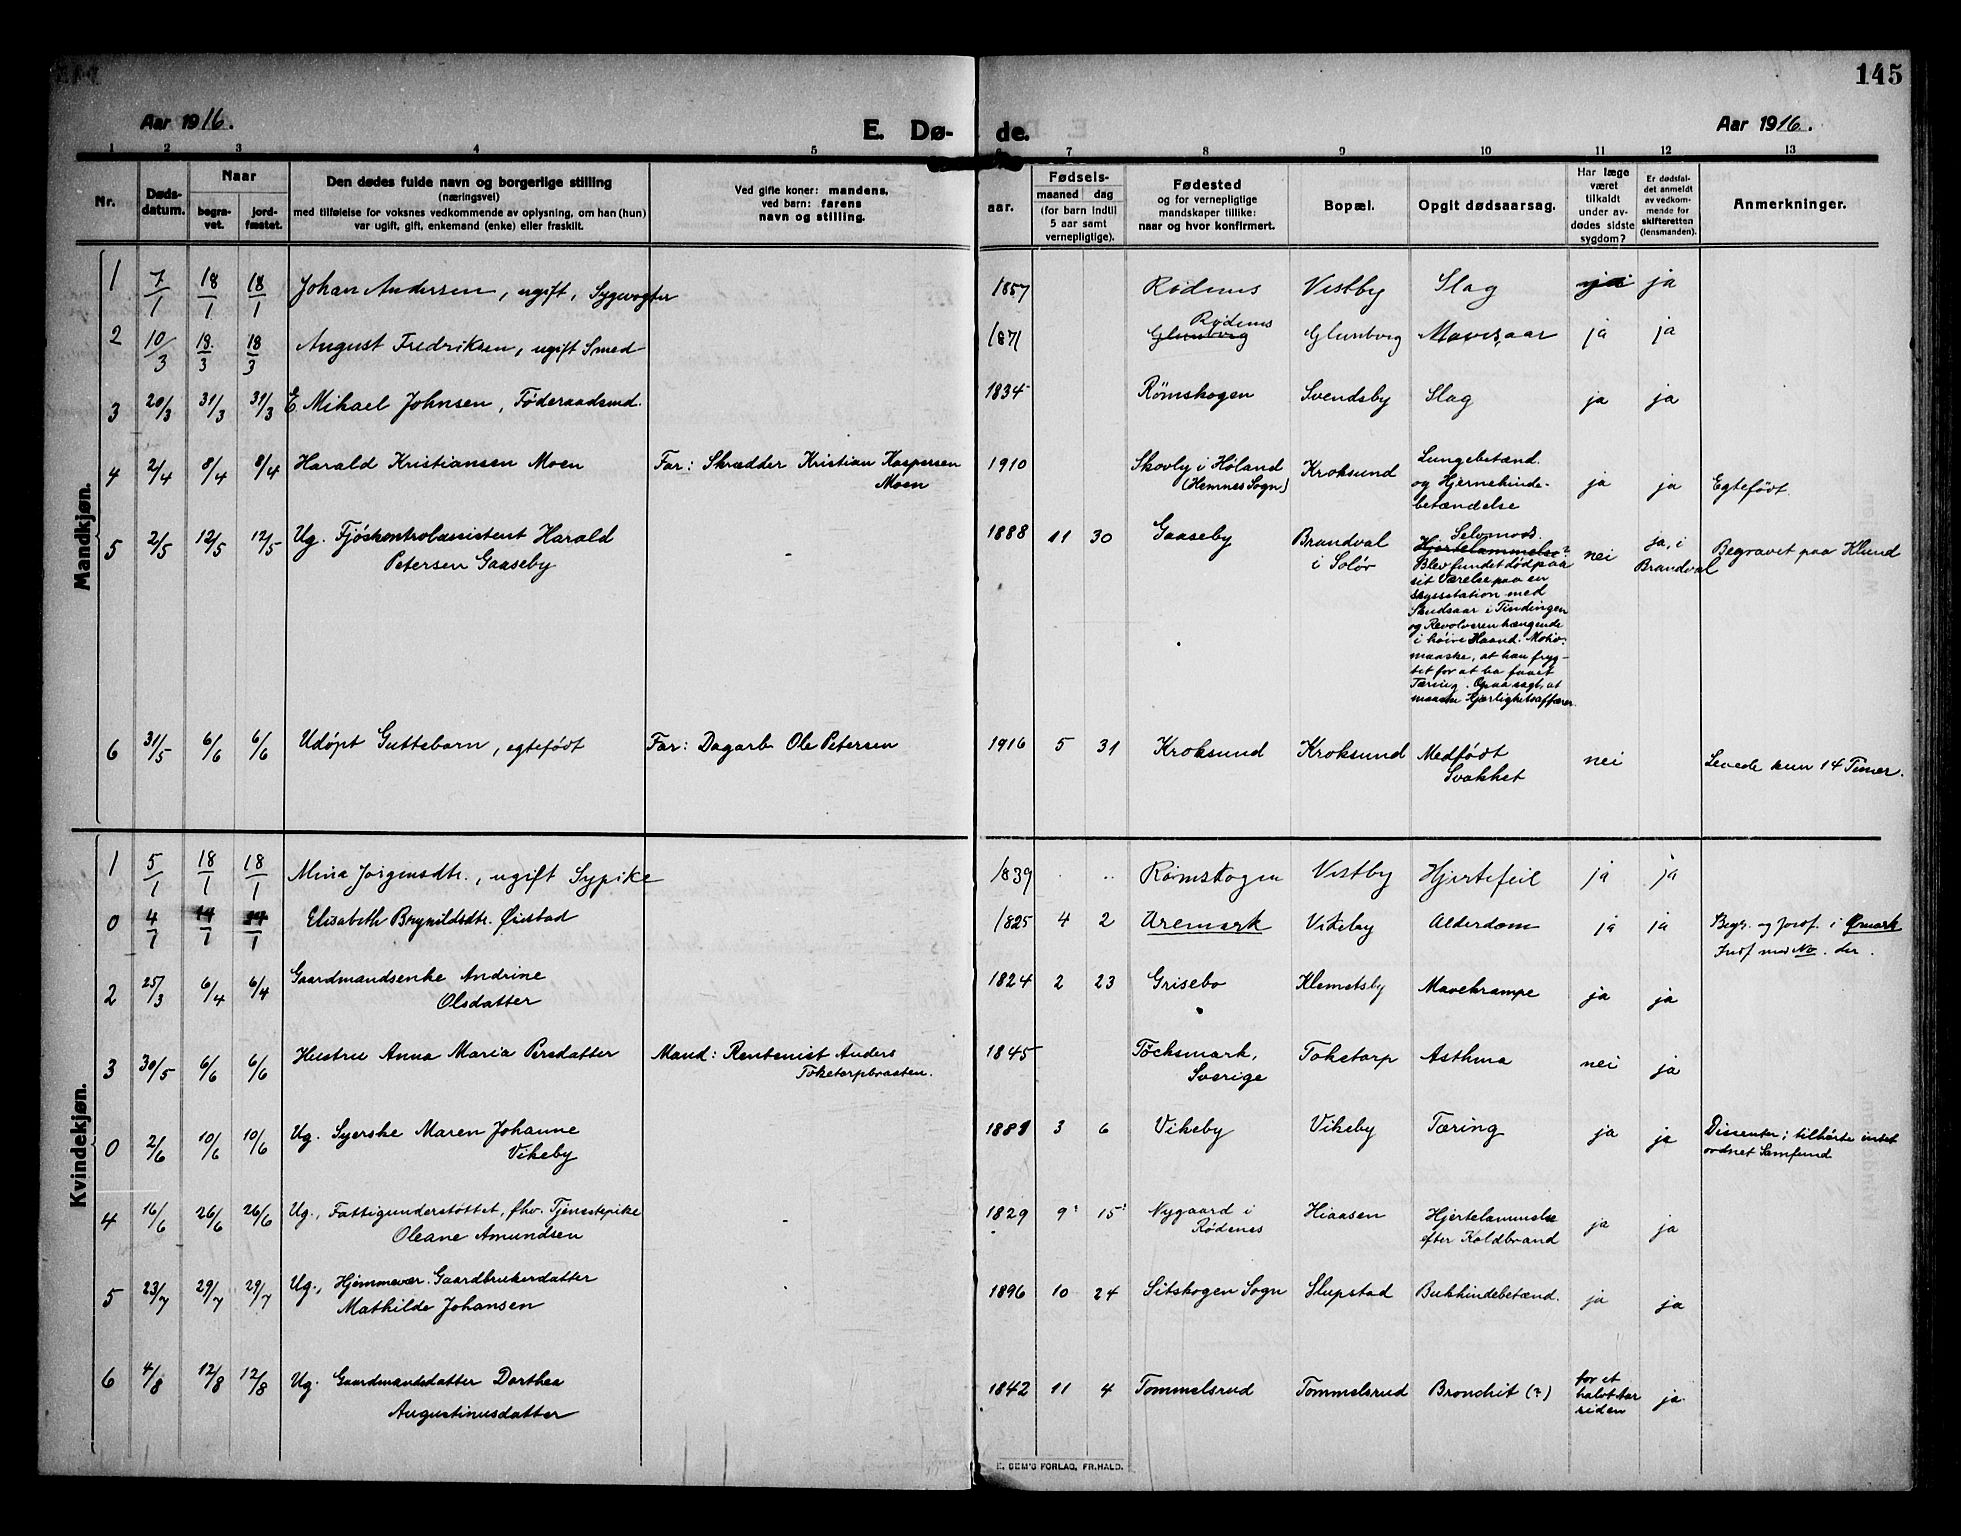 145
Aar 1916.
E. Dø- de.
Aar 1916.
1 2 3 4 5 7 8 9 10 11 12 13
Nr.
Døds-
datum.
Naar
begra-
vet.
jord-
fæstet.
Den dødes fulde navn og borgerlige stilling
(næringsvei)
med tilføielse for voksnes vedkommende av oplysning, om han (hun)
var ugift, gift, enkemand (enke) eller fraskilt.
Ved gifte koner: mandens,
ved barn: farens
navn og stilling.
aar.
Fødsels-
maaned dag
(for barn indtil
5 aar samt
vernepligtige).
Fødested
og for vernepligtige
mandskaper tillike:
naar og hvor konfirmert.
Bopæl.
Opgit dødsaarsag.
Har læge
været
tilkaldt
under av-
dødes sidste
sygdom?
Er dødsfal-
det anmeldt
av vedkom-
mende for
skifteretten
(lensmanden).
Anmerkninger.
Mandkjøn.
1 7/1 18/1 18/1 Johan Andersen, ugift, Sygevogter 1857 Rødenes Vestby Slag ja
2 10/3 18/3 18/3 August Fredriksen, ugift Smed 1871 Rødenes
Glumberg Glumberg Mavesaar ja ja
3 20/3 31/3 31/3 E Mikael Johnsen, Føderaadsmd. 1834 Rømskogen Svendsby Slag ja ja
4 2/4 8/4 8/4 Harald Kristiansen Moen Far: Skrædder Kristian Kaspersen
Moen
1910 Skovly i Høland
(Hemnes Sogn) Kroksund Lungebetænd.
og Hjernehinde-
betændelse ja ja Egtefødt
5 2/5 12/5 12/5 Ug. Fjøskontrolassistent Harald
Petersen Gaaseby
1888 11 30 Gaaseby Brandval
i Solør
Selvmord.
Hjertelammelse?
Blev fundet død paa
sit Værelse paa en
skysstation med
Skudsaar i Tindingen
og Revolveren hængende
i høire Haand. Motiv:
maaske, at han fryg-
tet for at ha faaet
Tæring. Ogsaa sagt, at
maaske Kjærlighetsaffærer.
nei ja, i
Brandval Begravet paa Klund
6 31/5 6/6 6/6 Udøpt Guttebarn, egtefødt Far: Dagarb. Ole Petersen 1916 5 31 Kroksund Kroksund Medfødt
Svakhet nei Levede kun 14 Timer.
Kvindekjøn.
1 5/1 18/1 18/1 Mina Jørgensdtr., ugift Sypike 1839 Rømskogen Vestby Hjertefeil ja ja
0 4/1 14/1 14/1 Elisabeth Brynildsdtr. Øiestad 1825 4 2 Aremark Vikeby Alderdom ja ja Begr. og jordf. i Ømark
Indf med No. der.
2 25/3 6/4 6/4 Gaardmandsenke Andrine
Olsdatter 1824 2 23 Grisebo Klemetsby Mavekrampe ja ja
3 30/5 6/6 6/6 Hustru Anna Maria Persdatter Mand: Rentenist Anders
Toketorpbraaten.
1845 Töcksmark,
Sverige Toketorp Asthma nei ja
0 2/6 10/6 10/6 Ug. Syerske Maren Johanne
Vikeby 1881 3 6 Vikeby Vikeby Tæring ja ja Dissenter; tilhørte intet
ordnet Samfund
4 16/6 26/6 26/6 Ug., Fattigunderstøttet, fhv. Tjenestepike
Oleane Amundsen 1829 9 15 Nygaard i
Rødenes Hiaasen Hjertelammelse
efter Koldbrand ja ja
5 23/7 29/7 29/7 Ug., Hjemmevær. Gaardbrukerdatter
Mathilde Johansen 1896 10 24 Sitskogen Sogn Slupstad Bukhindebetænd. ja ja
6 4/8 12/8 12/8 Ug. Gaardmandsdatter Dorthea
Augustinusdatter 1842 11 4 Tommelsrud Tommelsrud Bronchit (?) for et
halvt aar
siden ja
E. SEM'S FORLAG, FR.HALD.